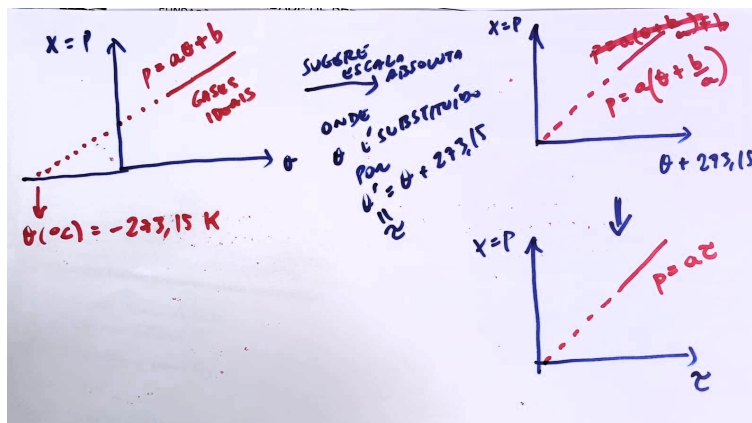 X = P
P = aθ + b
GASES
IDEAIS
θ
θ(°C) = -273,15 K
SUGERE
ESCALA
ABSOLUTA
ONDE
θ É SUBSTITUÍDO
POR
θ' = θ + 273,15
"
τ
X = P
P = a(θ + b/a)
θ + 273,15
X = P
P = aτ
τ